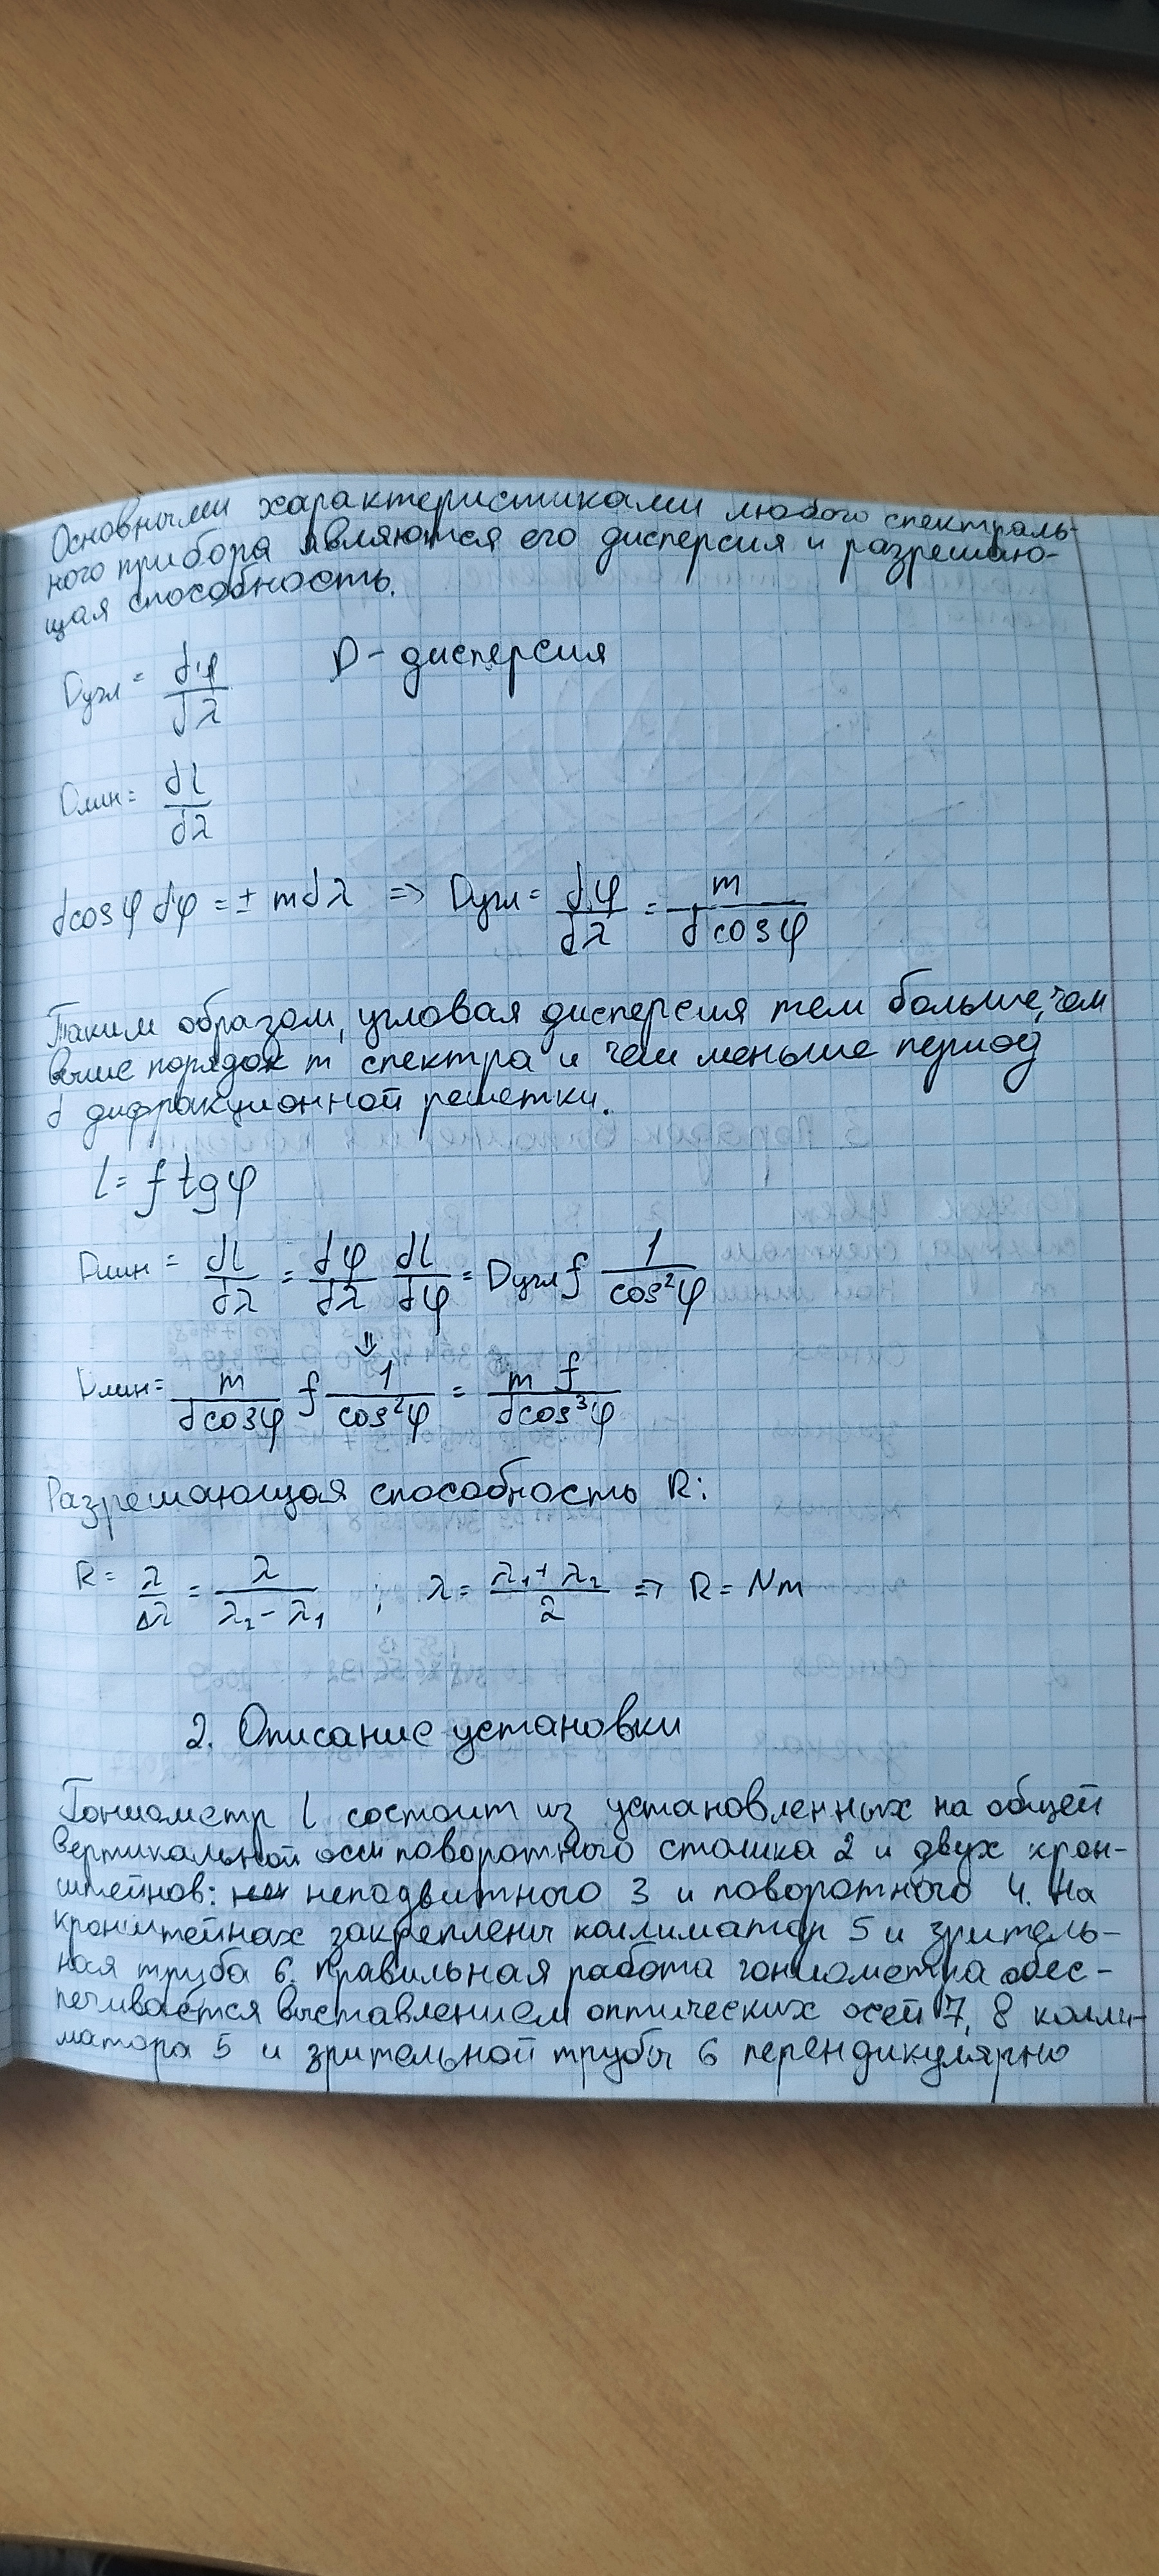 Основными характеристиками любого спектраль-
ного прибора являются его дисперсия и разрешаю-
щая способность.
Dугл = dφ/dλ    D - дисперсия
Dлин = dl/dλ
dcosφ dφ = ± mdλ => Dугл = dφ/dλ = m/dcosφ
Таким образом, угловая дисперсия тем больше, чем
выше порядок m спектра и чем меньше период
d дифракционной решетки.
l = f tgφ
Dлин = dl/dλ = dφ/dλ dl/dφ = Dугл f 1/cos²φ
⇓
Dлин = m/dcosφ f 1/cos²φ = m f/dcos³φ
Разрешающая способность R:
R = λ/Δλ = λ/λ₂-λ₁ ; λ = λ₁+λ₂/2 => R = Nm
2. Описание установки
Гониометр 1 состоит из установленных на общей
вертикальной оси поворотного столика 2 и двух крон-
штейнов: неподвижного 3 и поворотного 4. На
кронштейнах закреплены коллиматор 5 и зритель-
ная труба 6. Правильная работа гониометра обес-
печивается выставлением оптических осей 7, 8 колли-
матора 5 и зрительной трубы 6 перендикулярно